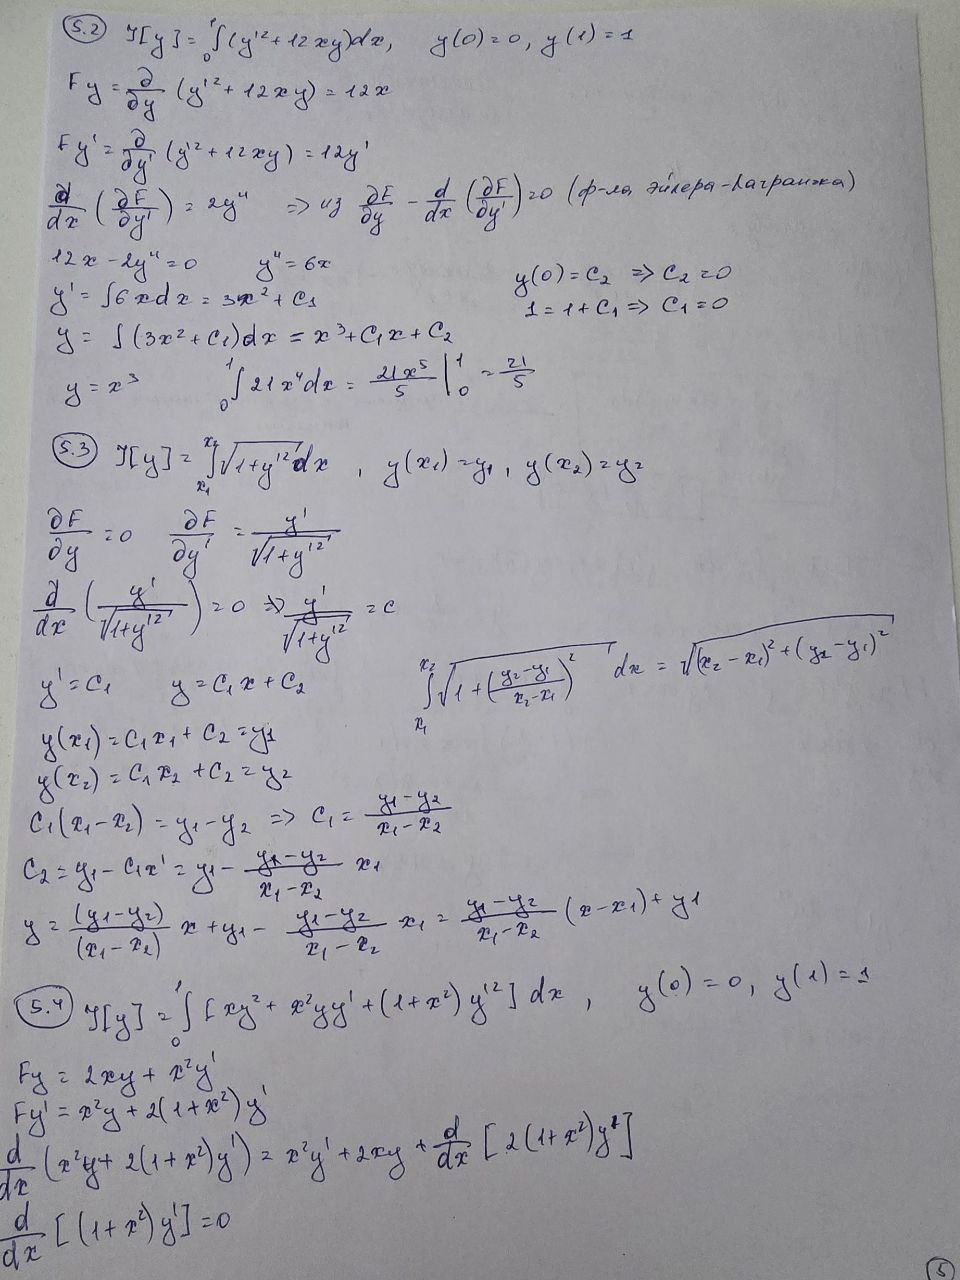 5.2 J[y] = ∫₀¹ (y'² + 12xy)dx, y(0)=0, y(1)=1
Fy = ∂/∂y (y'² + 12xy) = 12x
Fy' = ∂/∂y' (y'² + 12xy) = 12y'
d/dx (∂F/∂y') = 2y'' => из ∂F/∂y - d/dx (∂F/∂y') = 0 (ф-ла Эйлера-Лагранжа)
12x - 2y'' = 0 y'' = 6x
y(0) = C₂ => C₂ = 0
y' = ∫6xdx = 3x² + C₁
1 = 1 + C₁ => C₁ = 0
y = ∫(3x² + C₁)dx = x³ + C₁x + C₂
y = x³ ∫₀¹ 21x⁴dx = 21x⁵/5 |₀¹ = 21/5
5.3 J[y] = ∫ₓ₁ˣ² √(1+y'²) dx, y(x₁) = y₁, y(x₂) = y₂
∂F/∂y = 0 ∂F/∂y' = y'/√(1+y'²)
d/dx (y'/√(1+y'²)) = 0 => y'/√(1+y'²) = C
y' = C₁ y = C₁x + C₂
∫ₓ₁ˣ² √(1 + ((y₂-y₁)/(x₂-x₁))²) dx = √((x₂-x₁)² + (y₂-y₁)²)
y(x₁) = C₁x₁ + C₂ = y₁
y(x₂) = C₁x₂ + C₂ = y₂
C₁(x₁-x₂) = y₁-y₂ => C₁ = (y₁-y₂)/(x₁-x₂)
C₂ = y₁ - C₁x' = y₁ - (y₁-y₂)/(x₁-x₂) x₁
y = (y₁-y₂)/(x₁-x₂) x + y₁ - (y₁-y₂)/(x₁-x₂) x₁ = (y₁-y₂)/(x₁-x₂) (x-x₁) + y₁
5.4 J[y] = ∫₀¹ [xy² + x²yy' + (1+x²)y'²] dx, y(0) = 0, y(1) = 1
Fy = 2xy + x²y'
Fy' = x²y + 2(1+x²)y'
d/dx (x²y + 2(1+x²)y') = x²y' + 2xy + d/dx [2(1+x²)y']
d/dx [(1+x²)y'] = 0
5